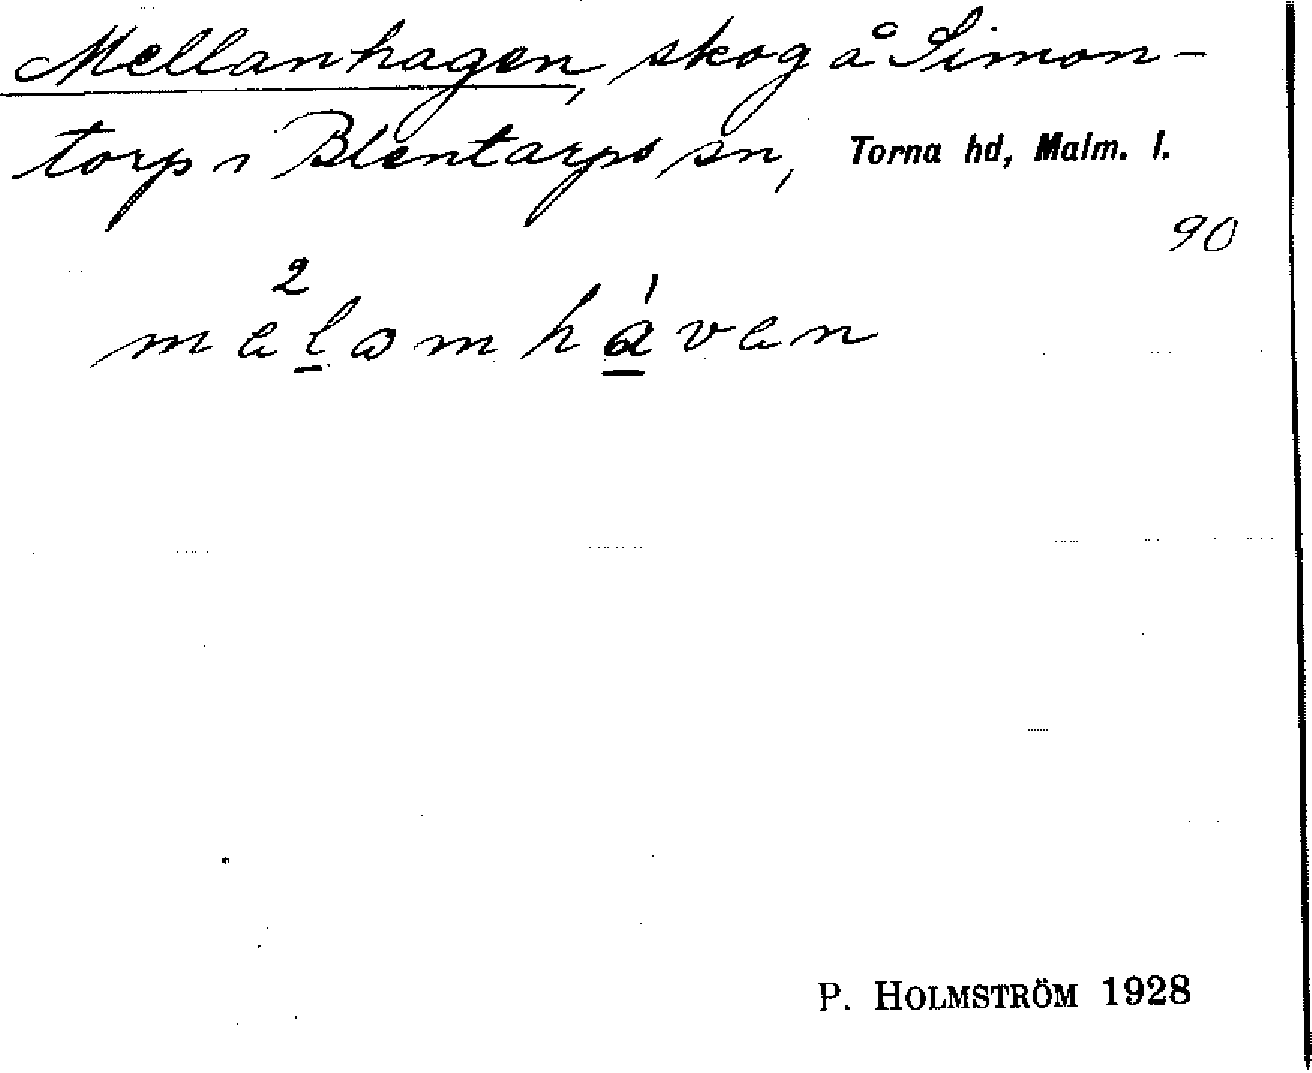 Mellanhagen, skog å Simon-
torp i Blentarps sn, Torna hd, Malm. l.
90
2
melamháven
P. HOLMSTRÖM 1928